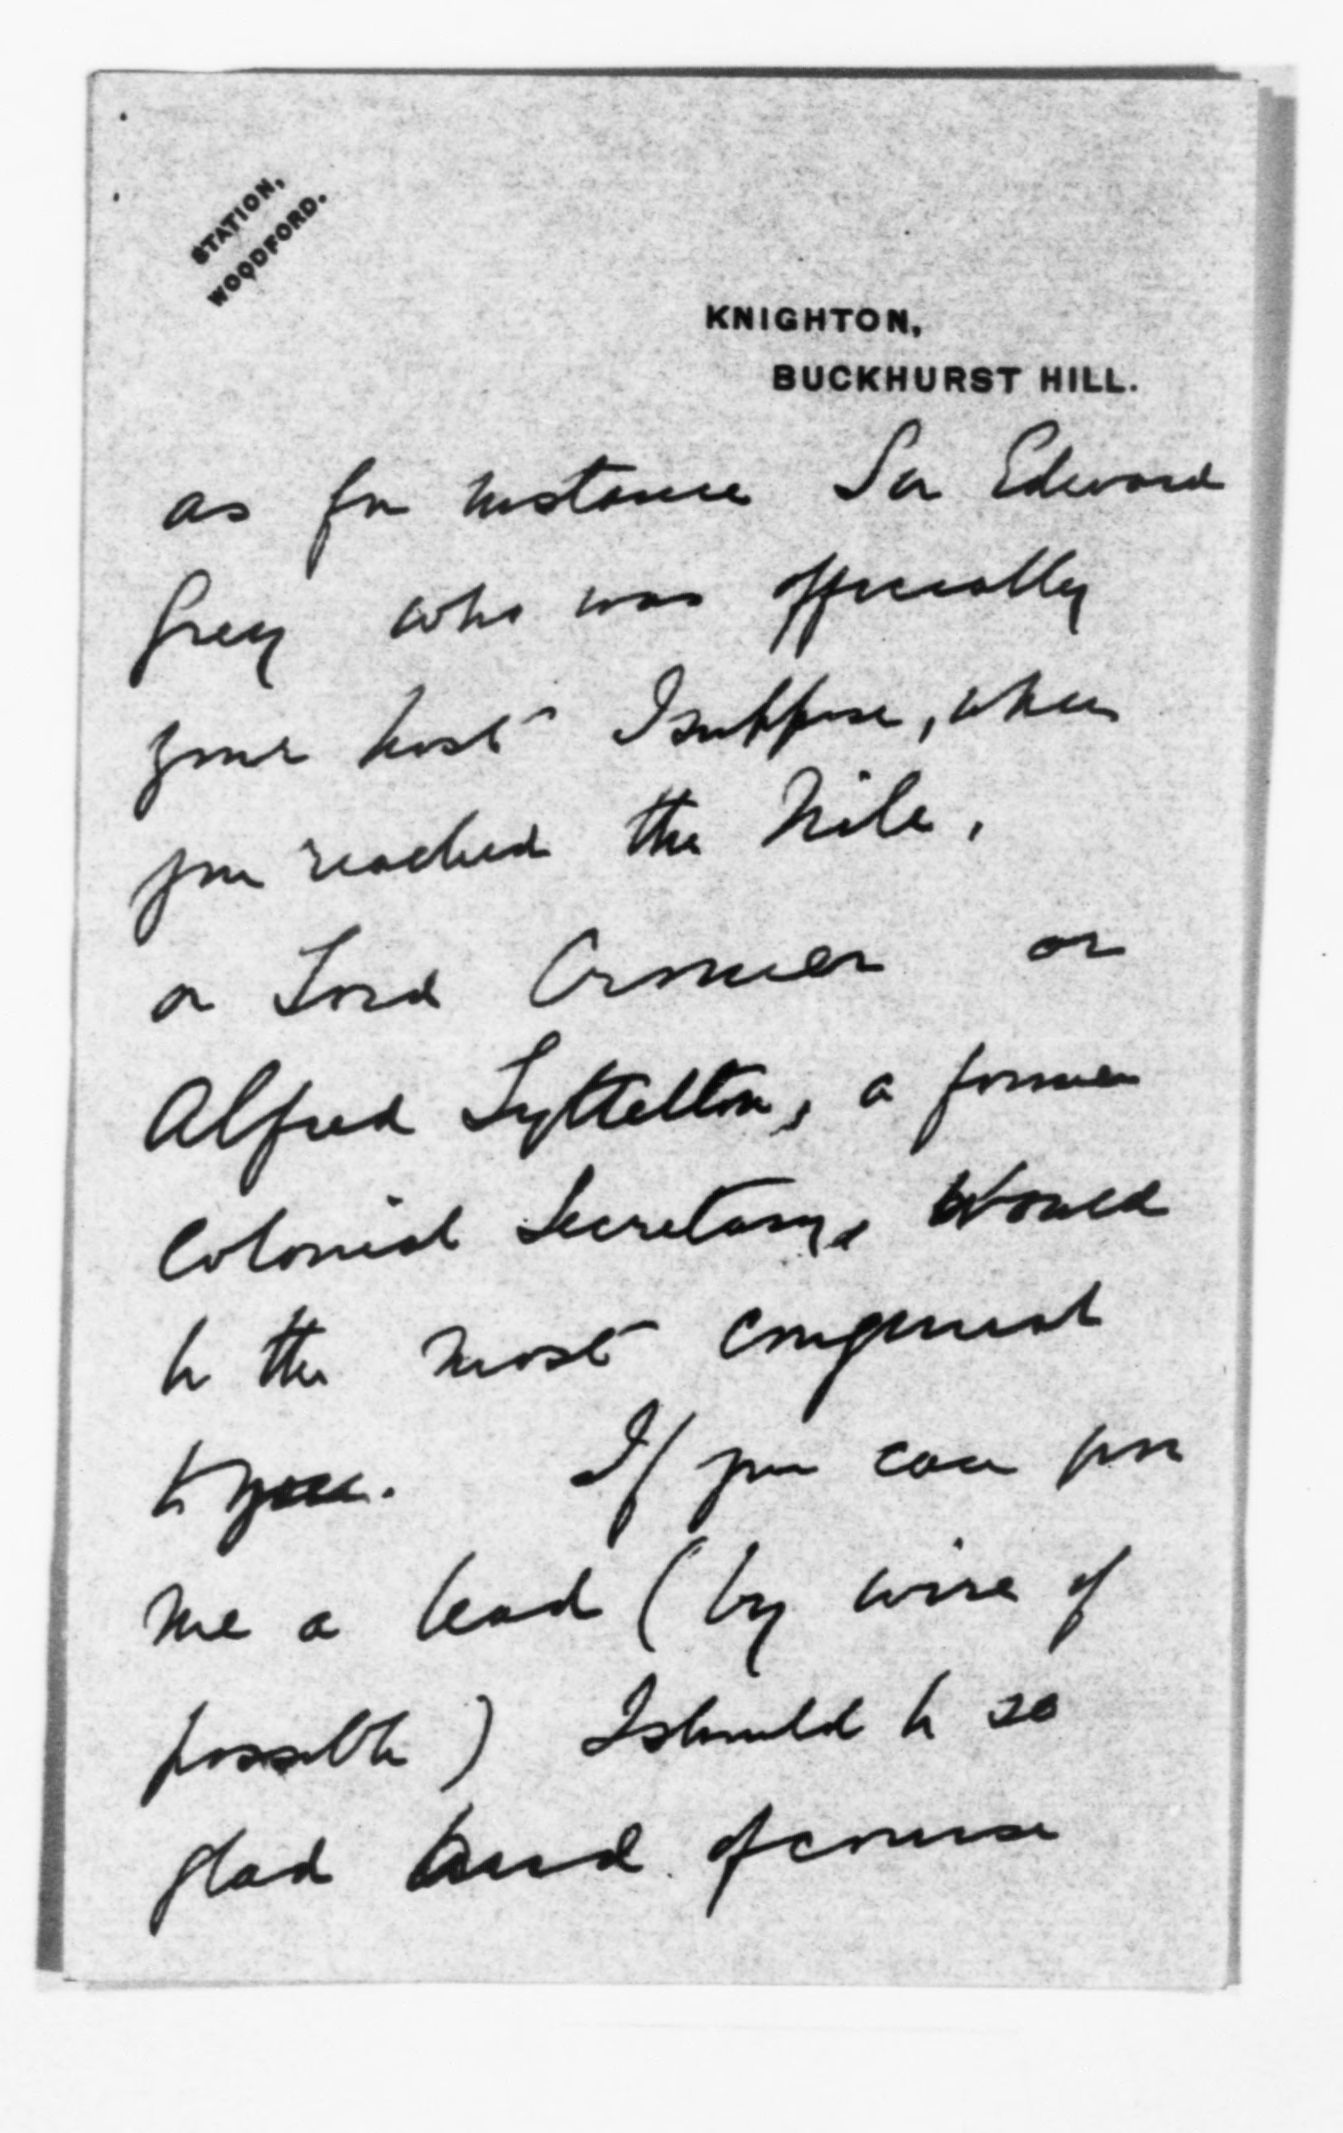 STATION,
WOODFORD.
KNIGHTON,
BUCKHURST HILL.
as for instance Sir Edward
Grey who was officially
your host I suppose, when
you reached the Nile,
or Lord Cromer or
Alfred Lyttelton, a former
Colonial Secretary, would
be the most congenial
to you. If you can give
me a lead (by wire if
possible) I should be so
glad and of course